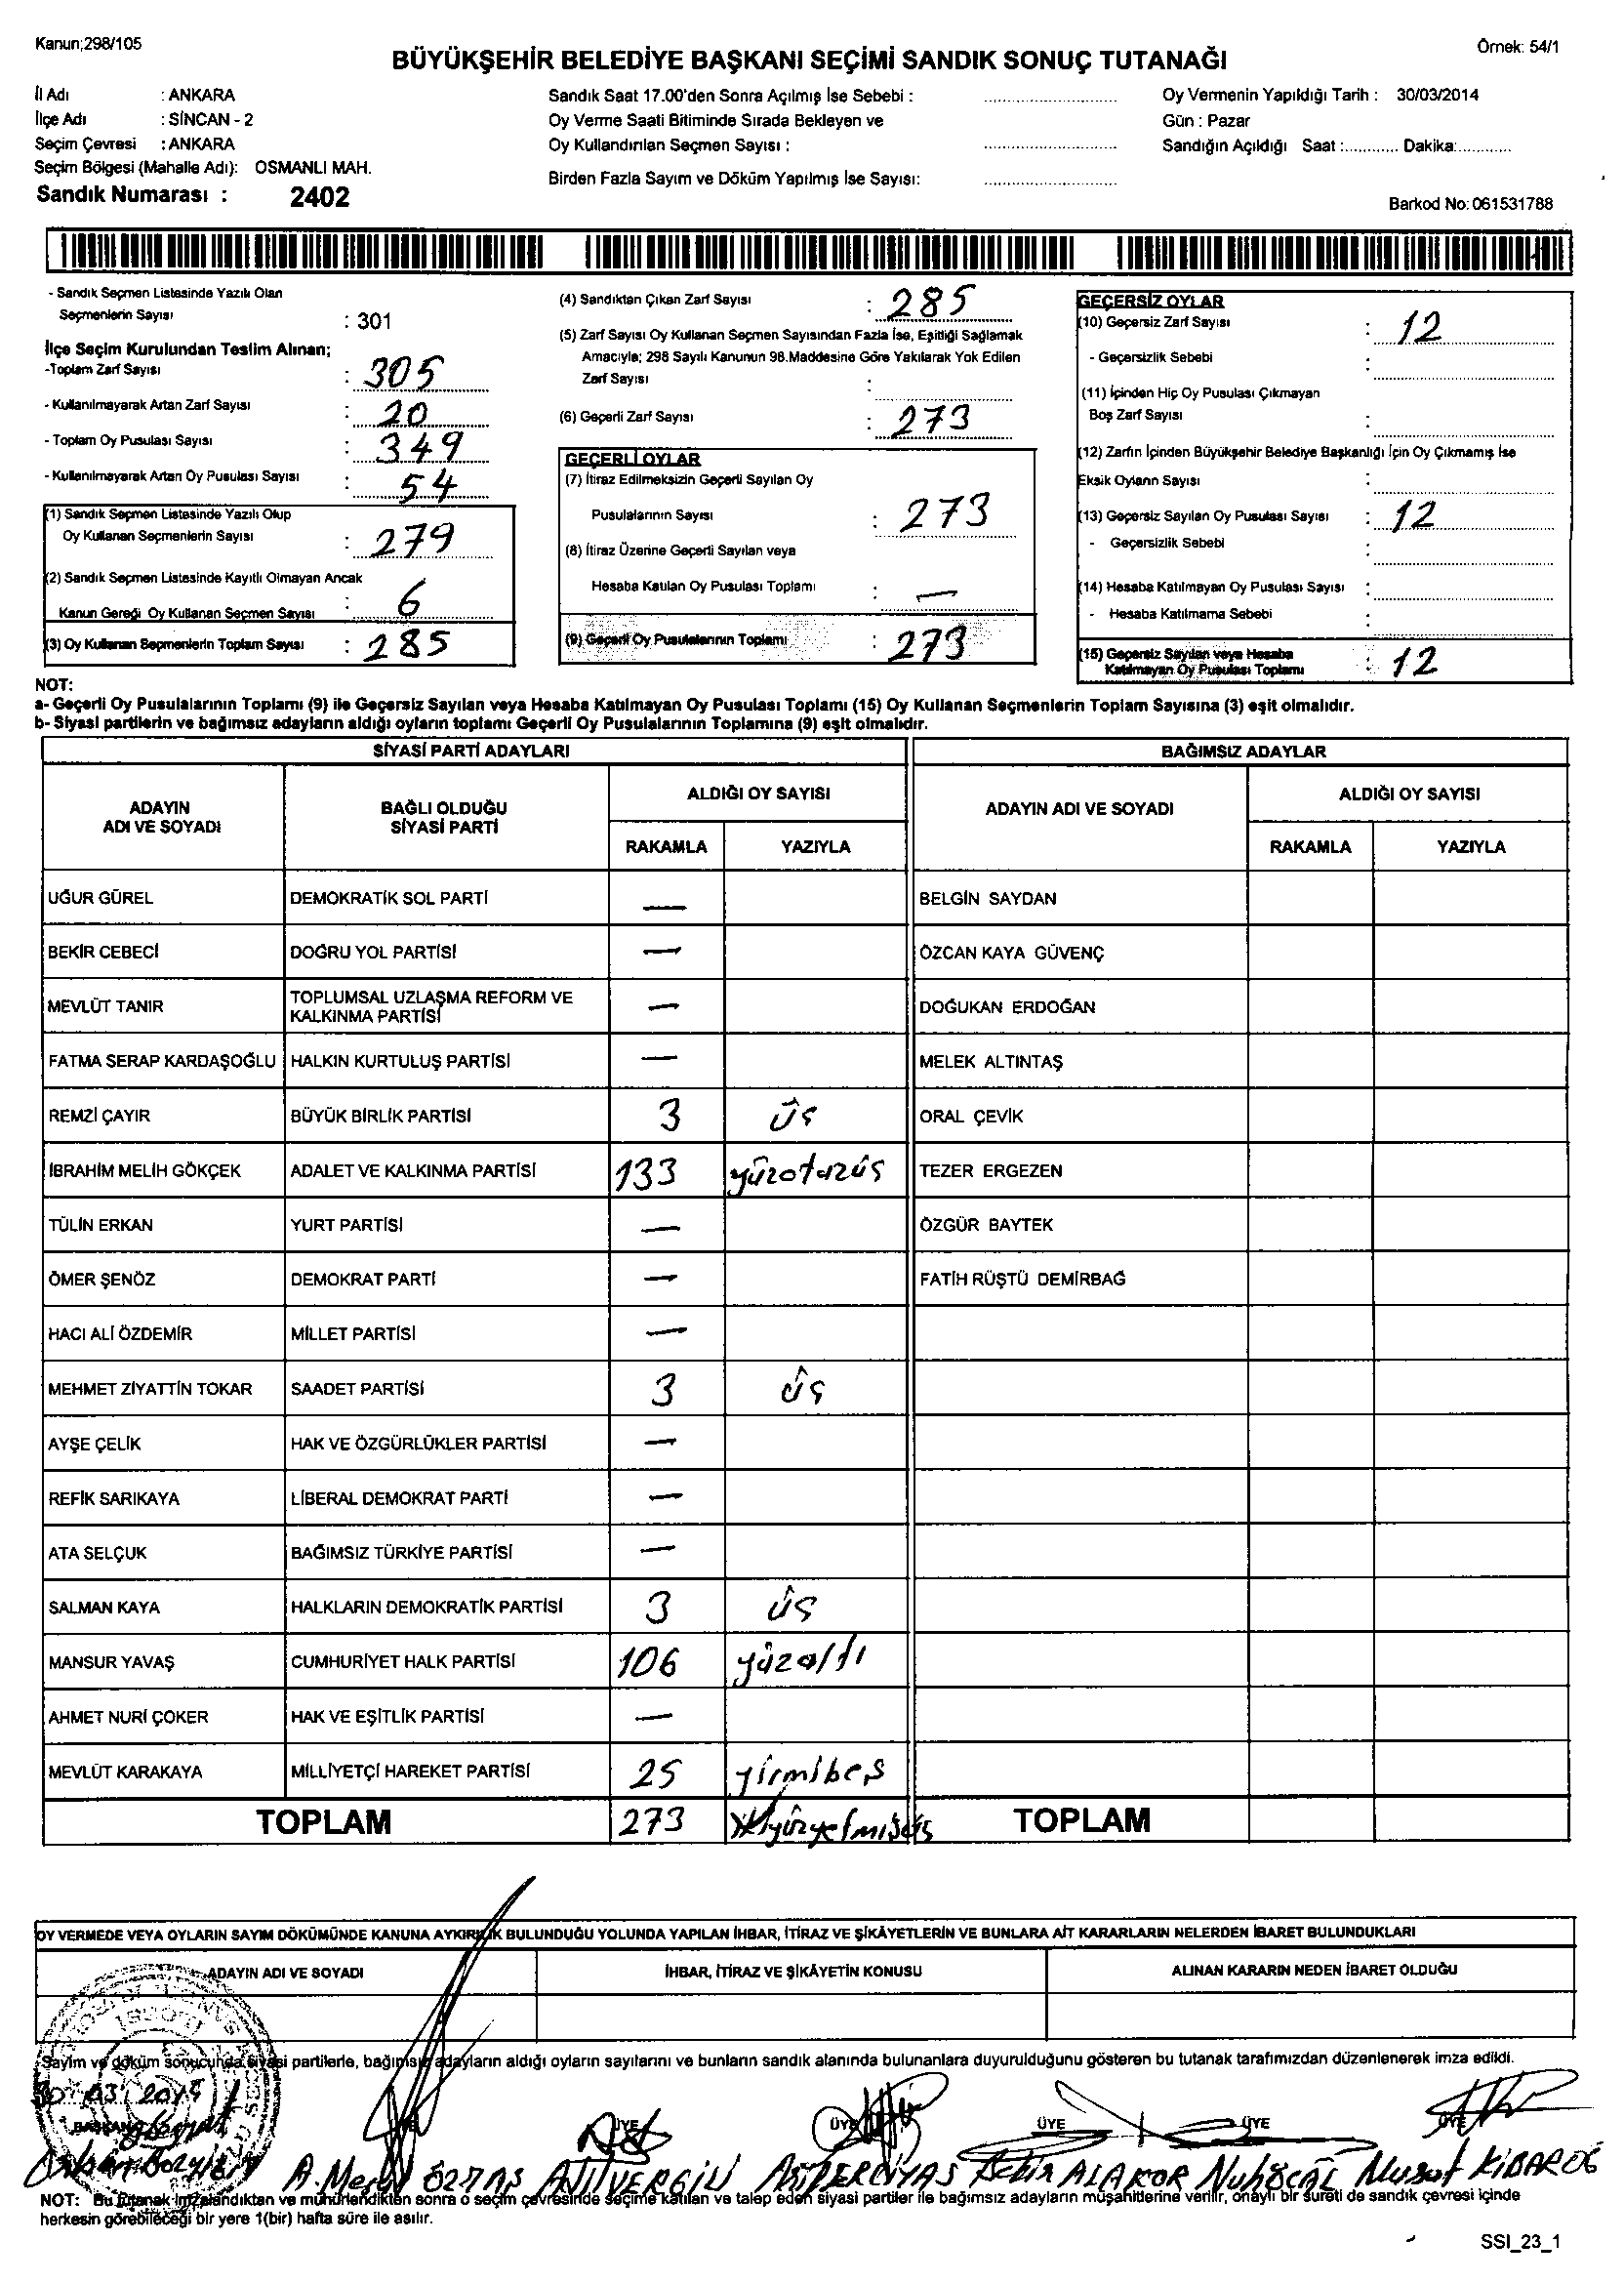 Kanun;298/105
Örnek: 54/1
BÜYÜKŞEHİR BELEDİYE BAŞKANI SEÇİMİ SANDIK SONUÇ TUTANAĞI
İl Adı : ANKARA
İlçe Adı : SİNCAN - 2
Seçim Çevresi : ANKARA
Seçim Bölgesi (Mahalle Adı): OSMANLI MAH.
Sandık Numarası : 2402
Sandık Saat 17.00'den Sonra Açılmış İse Sebebi :
Oy Verme Saati Bitiminde Sırada Bekleyen ve
Oy Kullandırılan Seçmen Sayısı :
Birden Fazla Sayım ve Döküm Yapılmış İse Sayısı:
Oy Vermenin Yapıldığı Tarih : 30/03/2014
Gün : Pazar
Sandığın Açıldığı Saat :............ Dakika:............
Barkod No: 061531788
- Sandık Seçmen Listesinde Yazılı Olan
Seçmenlerin Sayısı : 301
İlçe Seçim Kurulundan Teslim Alınan;
-Toplam Zarf Sayısı : 305
- Kullanılmayarak Artan Zarf Sayısı : 20
- Toplam Oy Pusulası Sayısı : 349
- Kullanılmayarak Artan Oy Pusulası Sayısı : 54
(1) Sandık Seçmen Listesinde Yazılı Olup
Oy Kullanan Seçmenlerin Sayısı : 279
(2) Sandık Seçmen Listesinde Kayıtlı Olmayan Ancak
Kanun Gereği Oy Kullanan Seçmen Sayısı : 6
(3) Oy Kullanan Seçmenlerin Toplam Sayısı : 285
(4) Sandıktan Çıkan Zarf Sayısı : 285
(5) Zarf Sayısı Oy Kullanan Seçmen Sayısından Fazla İse, Eşitliği Sağlamak
Amacıyla; 298 Sayılı Kanunun 98.Maddesine Göre Yakılarak Yok Edilen
Zarf Sayısı :
(6) Geçerli Zarf Sayısı : 273
GEÇERLİ OYLAR
(7) İtiraz Edilmeksizin Geçerli Sayılan Oy
Pusulalarının Sayısı : 273
(8) İtiraz Üzerine Geçerli Sayılan veya
Hesaba Katılan Oy Pusulası Toplamı : —
(9) Geçerli Oy Pusulalarının Toplamı : 273
GEÇERSİZ OYLAR
(10) Geçersiz Zarf Sayısı : 12
- Geçersizlik Sebebi :
(11) İçinden Hiç Oy Pusulası Çıkmayan
Boş Zarf Sayısı :
(12) Zarfın İçinden Büyükşehir Belediye Başkanlığı İçin Oy Çıkmamış İse
Eksik Oyların Sayısı :
(13) Geçersiz Sayılan Oy Pusulası Sayısı : 12
- Geçersizlik Sebebi :
(14) Hesaba Katılmayan Oy Pusulası Sayısı :
- Hesaba Katılmama Sebebi :
(15) Geçersiz Sayılan veya Hesaba
Katılmayan Oy Pusulası Toplamı : 12
NOT:
a- Geçerli Oy Pusulalarının Toplamı (9) ile Geçersiz Sayılan veya Hesaba Katılmayan Oy Pusulası Toplamı (15) Oy Kullanan Seçmenlerin Toplam Sayısına (3) eşit olmalıdır.
b- Siyasi partilerin ve bağımsız adayların aldığı oyların toplamı Geçerli Oy Pusulalarının Toplamına (9) eşit olmalıdır.
SİYASİ PARTİ ADAYLARI BAĞIMSIZ ADAYLAR
ADAYIN ADI VE SOYADI BAĞLI OLDUĞU SİYASİ PARTİ ALDIĞI OY SAYISI ADAYIN ADI VE SOYADI ALDIĞI OY SAYISI
RAKAMLA YAZIYLA RAKAMLA YAZIYLA
UĞUR GÜREL DEMOKRATİK SOL PARTİ — BELGİN SAYDAN
BEKİR CEBECİ DOĞRU YOL PARTİSİ — ÖZCAN KAYA GÜVENÇ
MEVLÜT TANIR TOPLUMSAL UZLAŞMA REFORM VE KALKINMA PARTİSİ — DOĞUKAN ERDOĞAN
FATMA SERAP KARDAŞOĞLU HALKIN KURTULUŞ PARTİSİ — MELEK ALTINTAŞ
REMZİ ÇAYIR BÜYÜK BİRLİK PARTİSİ 3 üç ORAL ÇEVİK
İBRAHİM MELİH GÖKÇEK ADALET VE KALKINMA PARTİSİ 133 yüzotuzüç TEZER ERGEZEN
TÜLİN ERKAN YURT PARTİSİ — ÖZGÜR BAYTEK
ÖMER ŞENÖZ DEMOKRAT PARTİ — FATİH RÜŞTÜ DEMİRBAĞ
HACI ALİ ÖZDEMİR MİLLET PARTİSİ —
MEHMET ZİYATTİN TOKAR SAADET PARTİSİ 3 üç
AYŞE ÇELİK HAK VE ÖZGÜRLÜKLER PARTİSİ —
REFİK SARIKAYA LİBERAL DEMOKRAT PARTİ —
ATA SELÇUK BAĞIMSIZ TÜRKİYE PARTİSİ —
SALMAN KAYA HALKLARIN DEMOKRATİK PARTİSİ 3 üç
MANSUR YAVAŞ CUMHURİYET HALK PARTİSİ 106 yüzaltı
AHMET NURİ ÇOKER HAK VE EŞİTLİK PARTİSİ —
MEVLÜT KARAKAYA MİLLİYETÇİ HAREKET PARTİSİ 25 yirmibeş
TOPLAM 273 ikiyüzyetmişüç TOPLAM
OY VERMEDE VEYA OYLARIN SAYIM DÖKÜMÜNDE KANUNA AYKIRILIK BULUNDUĞU YOLUNDA YAPILAN İHBAR, İTİRAZ VE ŞİKÂYETLERİN VE BUNLARA AİT KARARLARIN NELERDEN İBARET BULUNDUKLARI
ADAYIN ADI VE SOYADI İHBAR, İTİRAZ VE ŞİKÂYETİN KONUSU ALINAN KARARIN NEDEN İBARET OLDUĞU
Sayım ve döküm sonucunda siyasi partilerle, bağımsız adayların aldığı oyların sayılarını ve bunların sandık alanında bulunanlara duyurulduğunu gösteren bu tutanak tarafımızdan düzenlenerek imza edildi.
30/03/2014
BAŞKAN ÜYE ÜYE ÜYE ÜYE ÜYE
ÖZTAŞ ALAKOR Nuh Murat
NOT: Bu tutanak imzalandıktan ve mühürlendikten sonra o seçim çevresinde seçime katılan ve talep eden siyasi partiler ile bağımsız adayların müşahitlerine verilir, onaylı bir sureti de sandık çevresi içinde
herkesin görebileceği bir yere 1(bir) hafta süre ile asılır.
SSI_23_1